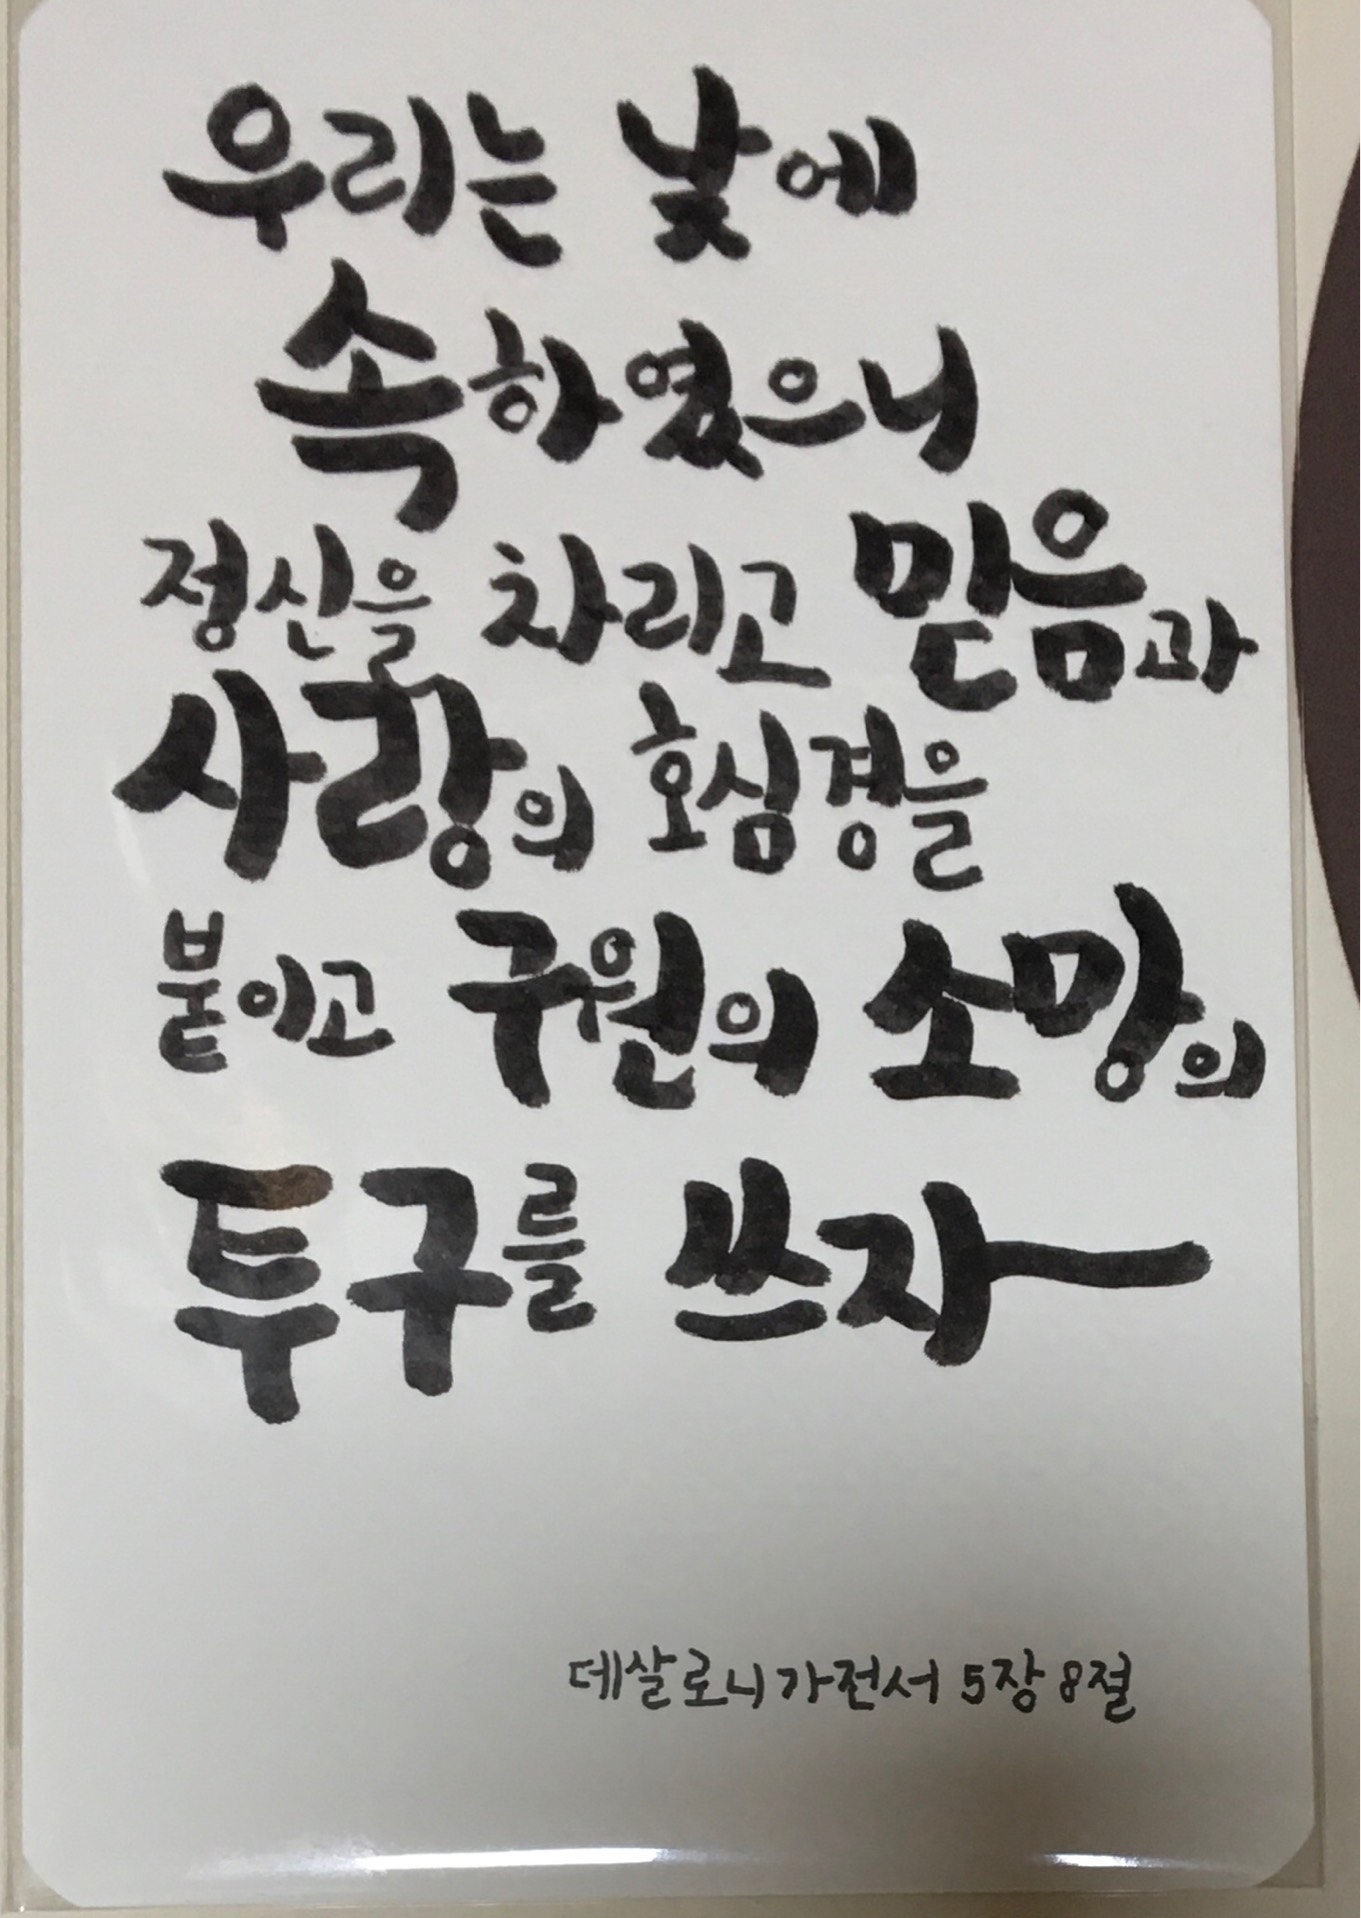 우리는 낮에
속하였으니
정신을 차리고 믿음과
사랑의 호심경을
붙이고 구원의 소망의
투구를 쓰자
데살로니가전서 5장 8절